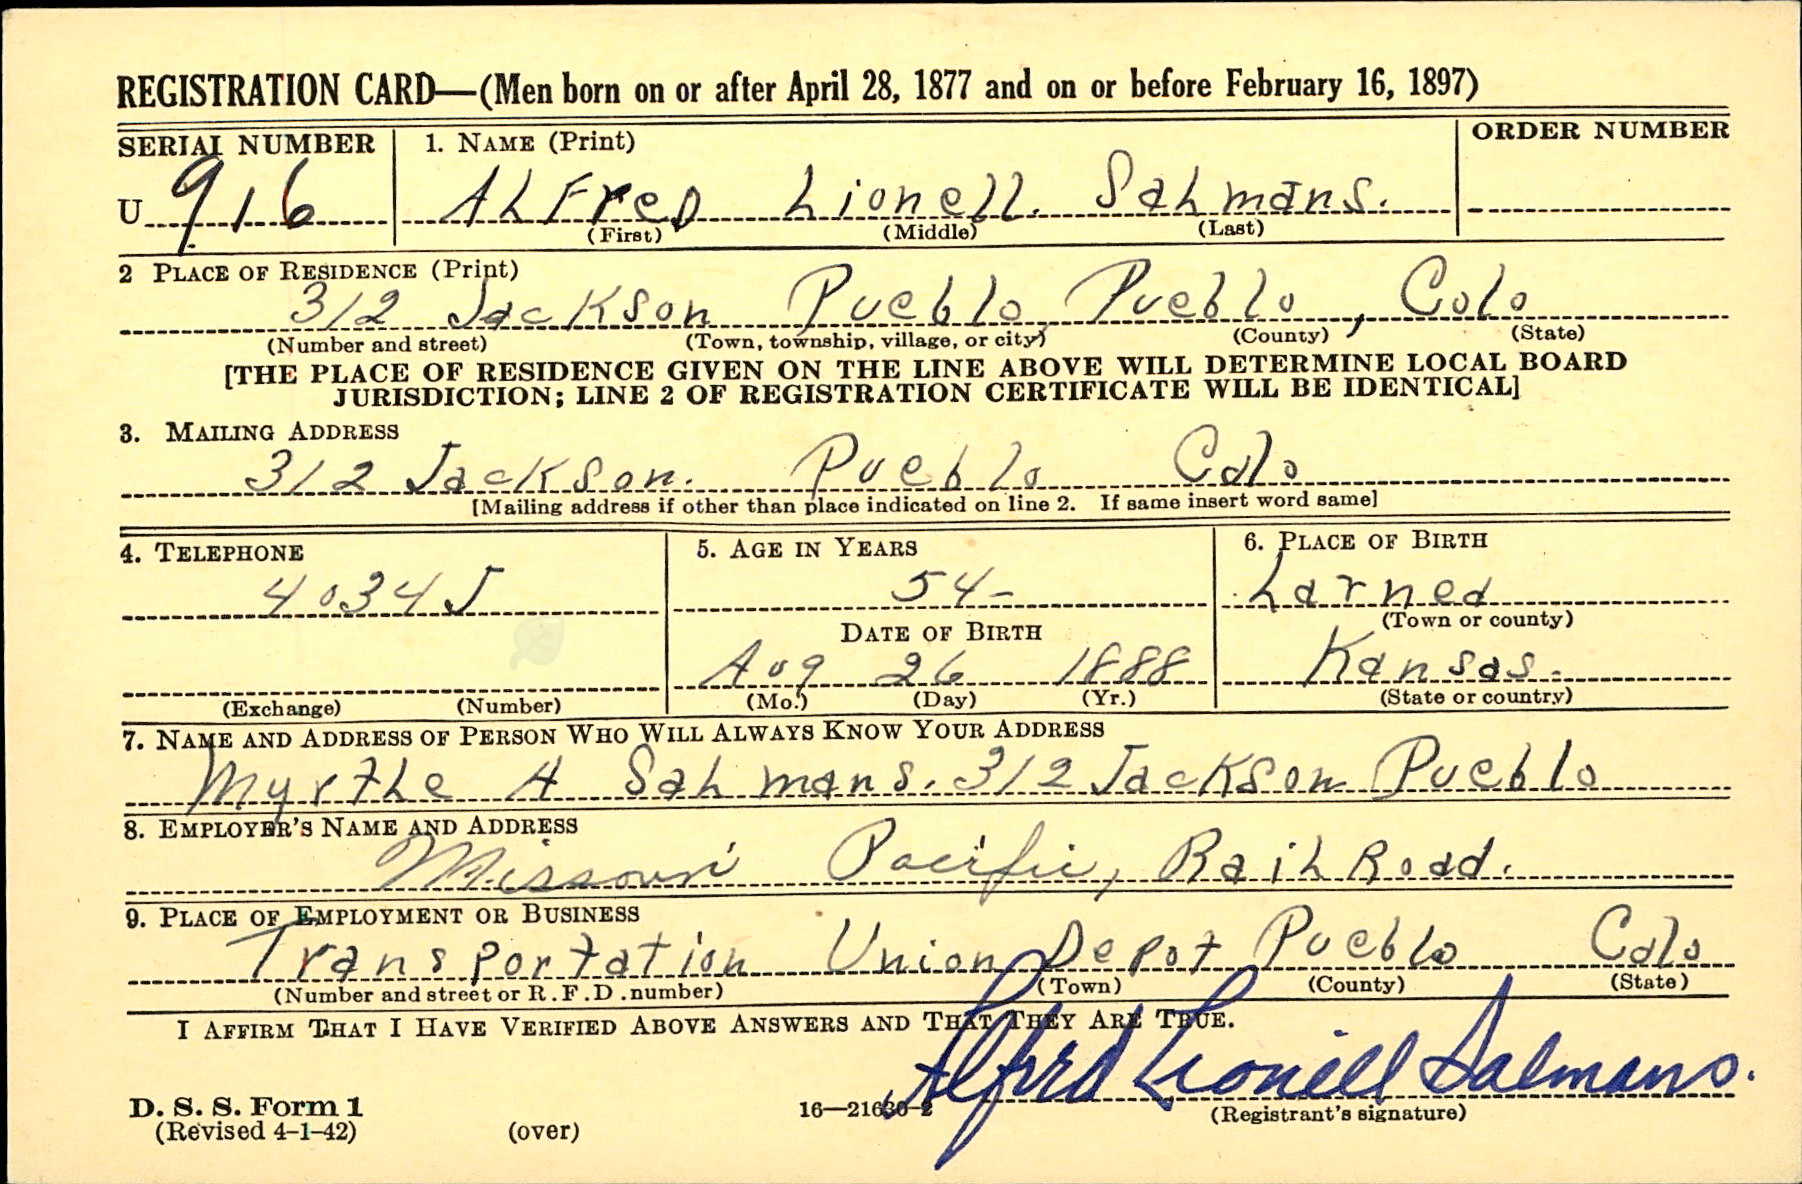 REGISTRATION CARD—(Men born on or after April 28, 1877 and on or before February 16, 1897)
SERIAL NUMBER 1. NAME (Print) ORDER NUMBER
U 916 ALFreD Lionell. SaLmans.
(First) (Middle) (Last)
2 PLACE OF RESIDENCE (Print)
312 Jackson Pueblo, Pueblo, Colo
(Number and street) (Town, township, village, or city) (County) (State)
[THE PLACE OF RESIDENCE GIVEN ON THE LINE ABOVE WILL DETERMINE LOCAL BOARD
JURISDICTION; LINE 2 OF REGISTRATION CERTIFICATE WILL BE IDENTICAL]
3. MAILING ADDRESS
312 Jackson. Pueblo Colo
[Mailing address if other than place indicated on line 2. If same insert word same]
4. TELEPHONE 5. AGE IN YEARS 6. PLACE OF BIRTH
4034J 54- Larned
(Town or county)
DATE OF BIRTH
Aug 26 1888 Kansas.
(Exchange) (Number) (Mo.) (Day) (Yr.) (State or country)
7. NAME AND ADDRESS OF PERSON WHO WILL ALWAYS KNOW YOUR ADDRESS
MyrtLe A SaLmans. 312 Jackson Pueblo
8. EMPLOYER'S NAME AND ADDRESS
Missouri Pacific, RaiLRoad.
9. PLACE OF EMPLOYMENT OR BUSINESS
Transportation Union Depot Pueblo Colo
(Number and street or R.F.D. number) (Town) (County) (State)
I AFFIRM THAT I HAVE VERIFIED ABOVE ANSWERS AND THAT THEY ARE TRUE.
Alfred Lionell Salmans.
D. S. S. Form 1 16—21630-2 (Registrant's signature)
(Revised 4-1-42) (over)